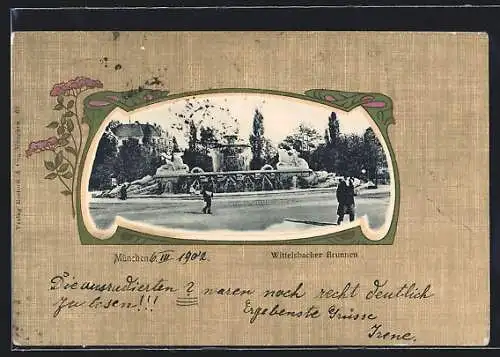 München 6. III. 1902.
Wittelsbacher Brunnen
Die ausradierten 2 waren noch recht deutlich
zu lesen!!!
Ergebenste Grüsse
Irene.
Verlag
München